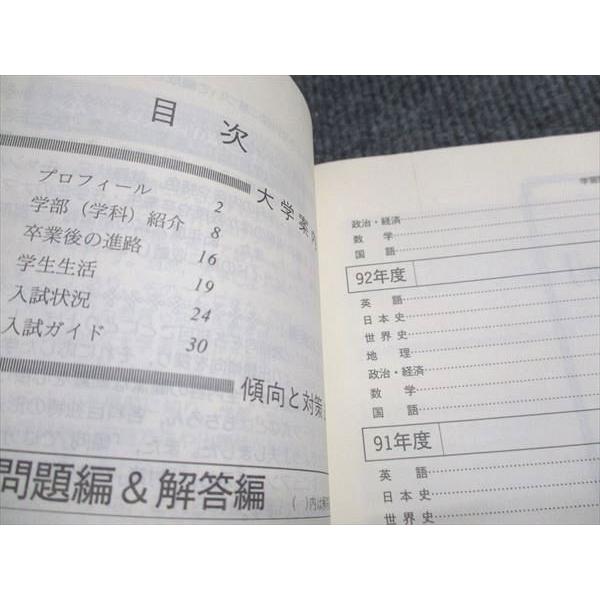 目次
大学案内
プロフィール 2
学部（学科）紹介 8
卒業後の進路 16
学生生活 19
入試状況 24
入試ガイド 30
傾向と対策
問題編＆解答編
（ ）内は解
政治・経済
数学
国語
92年度
英語
日本史
世界史
地理
政治・経済
数学
国語
91年度
英語
日本史
世界史